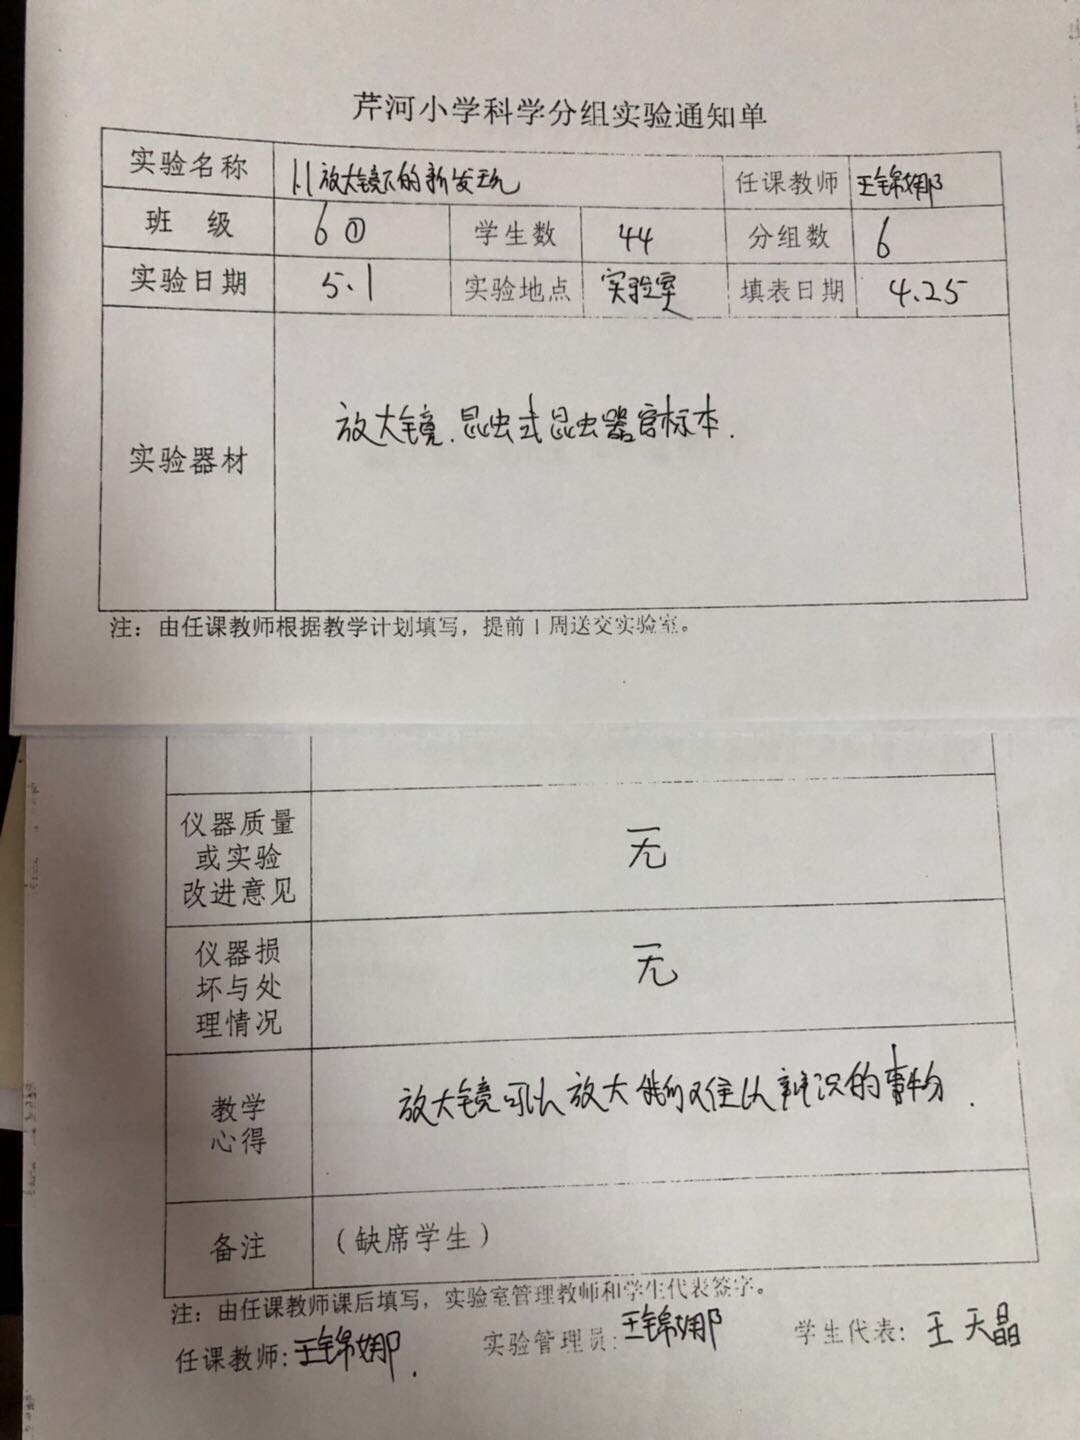 芹河小学科学分组实验通知单
实验名称 1.1 放大镜下的新发现 任课教师 王锦娜
班 级 6① 学生数 44 分组数 6
实验日期 5.1 实验地点 实验室 填表日期 4.25
实验器材 放大镜.昆虫或昆虫器官标本.
注：由任课教师根据教学计划填写，提前1周送交实验室。
仪器质量
或实验
改进意见
无
仪器损
坏与处
理情况
无
教学
心得
放大镜可以放大 以辨识的事物.
备注 （缺席学生）
注：由任课教师课后填写，实验室管理教师和学生代表签字。
任课教师：王锦娜. 实验管理员：王锦娜 学生代表：王天晶